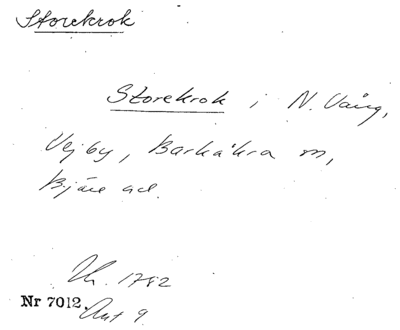 Storekrok
Storekrok i N. Vång,
Vejby, Barkåkra m,
Bjäre hd.
1782
Nr 7012. Akt 9